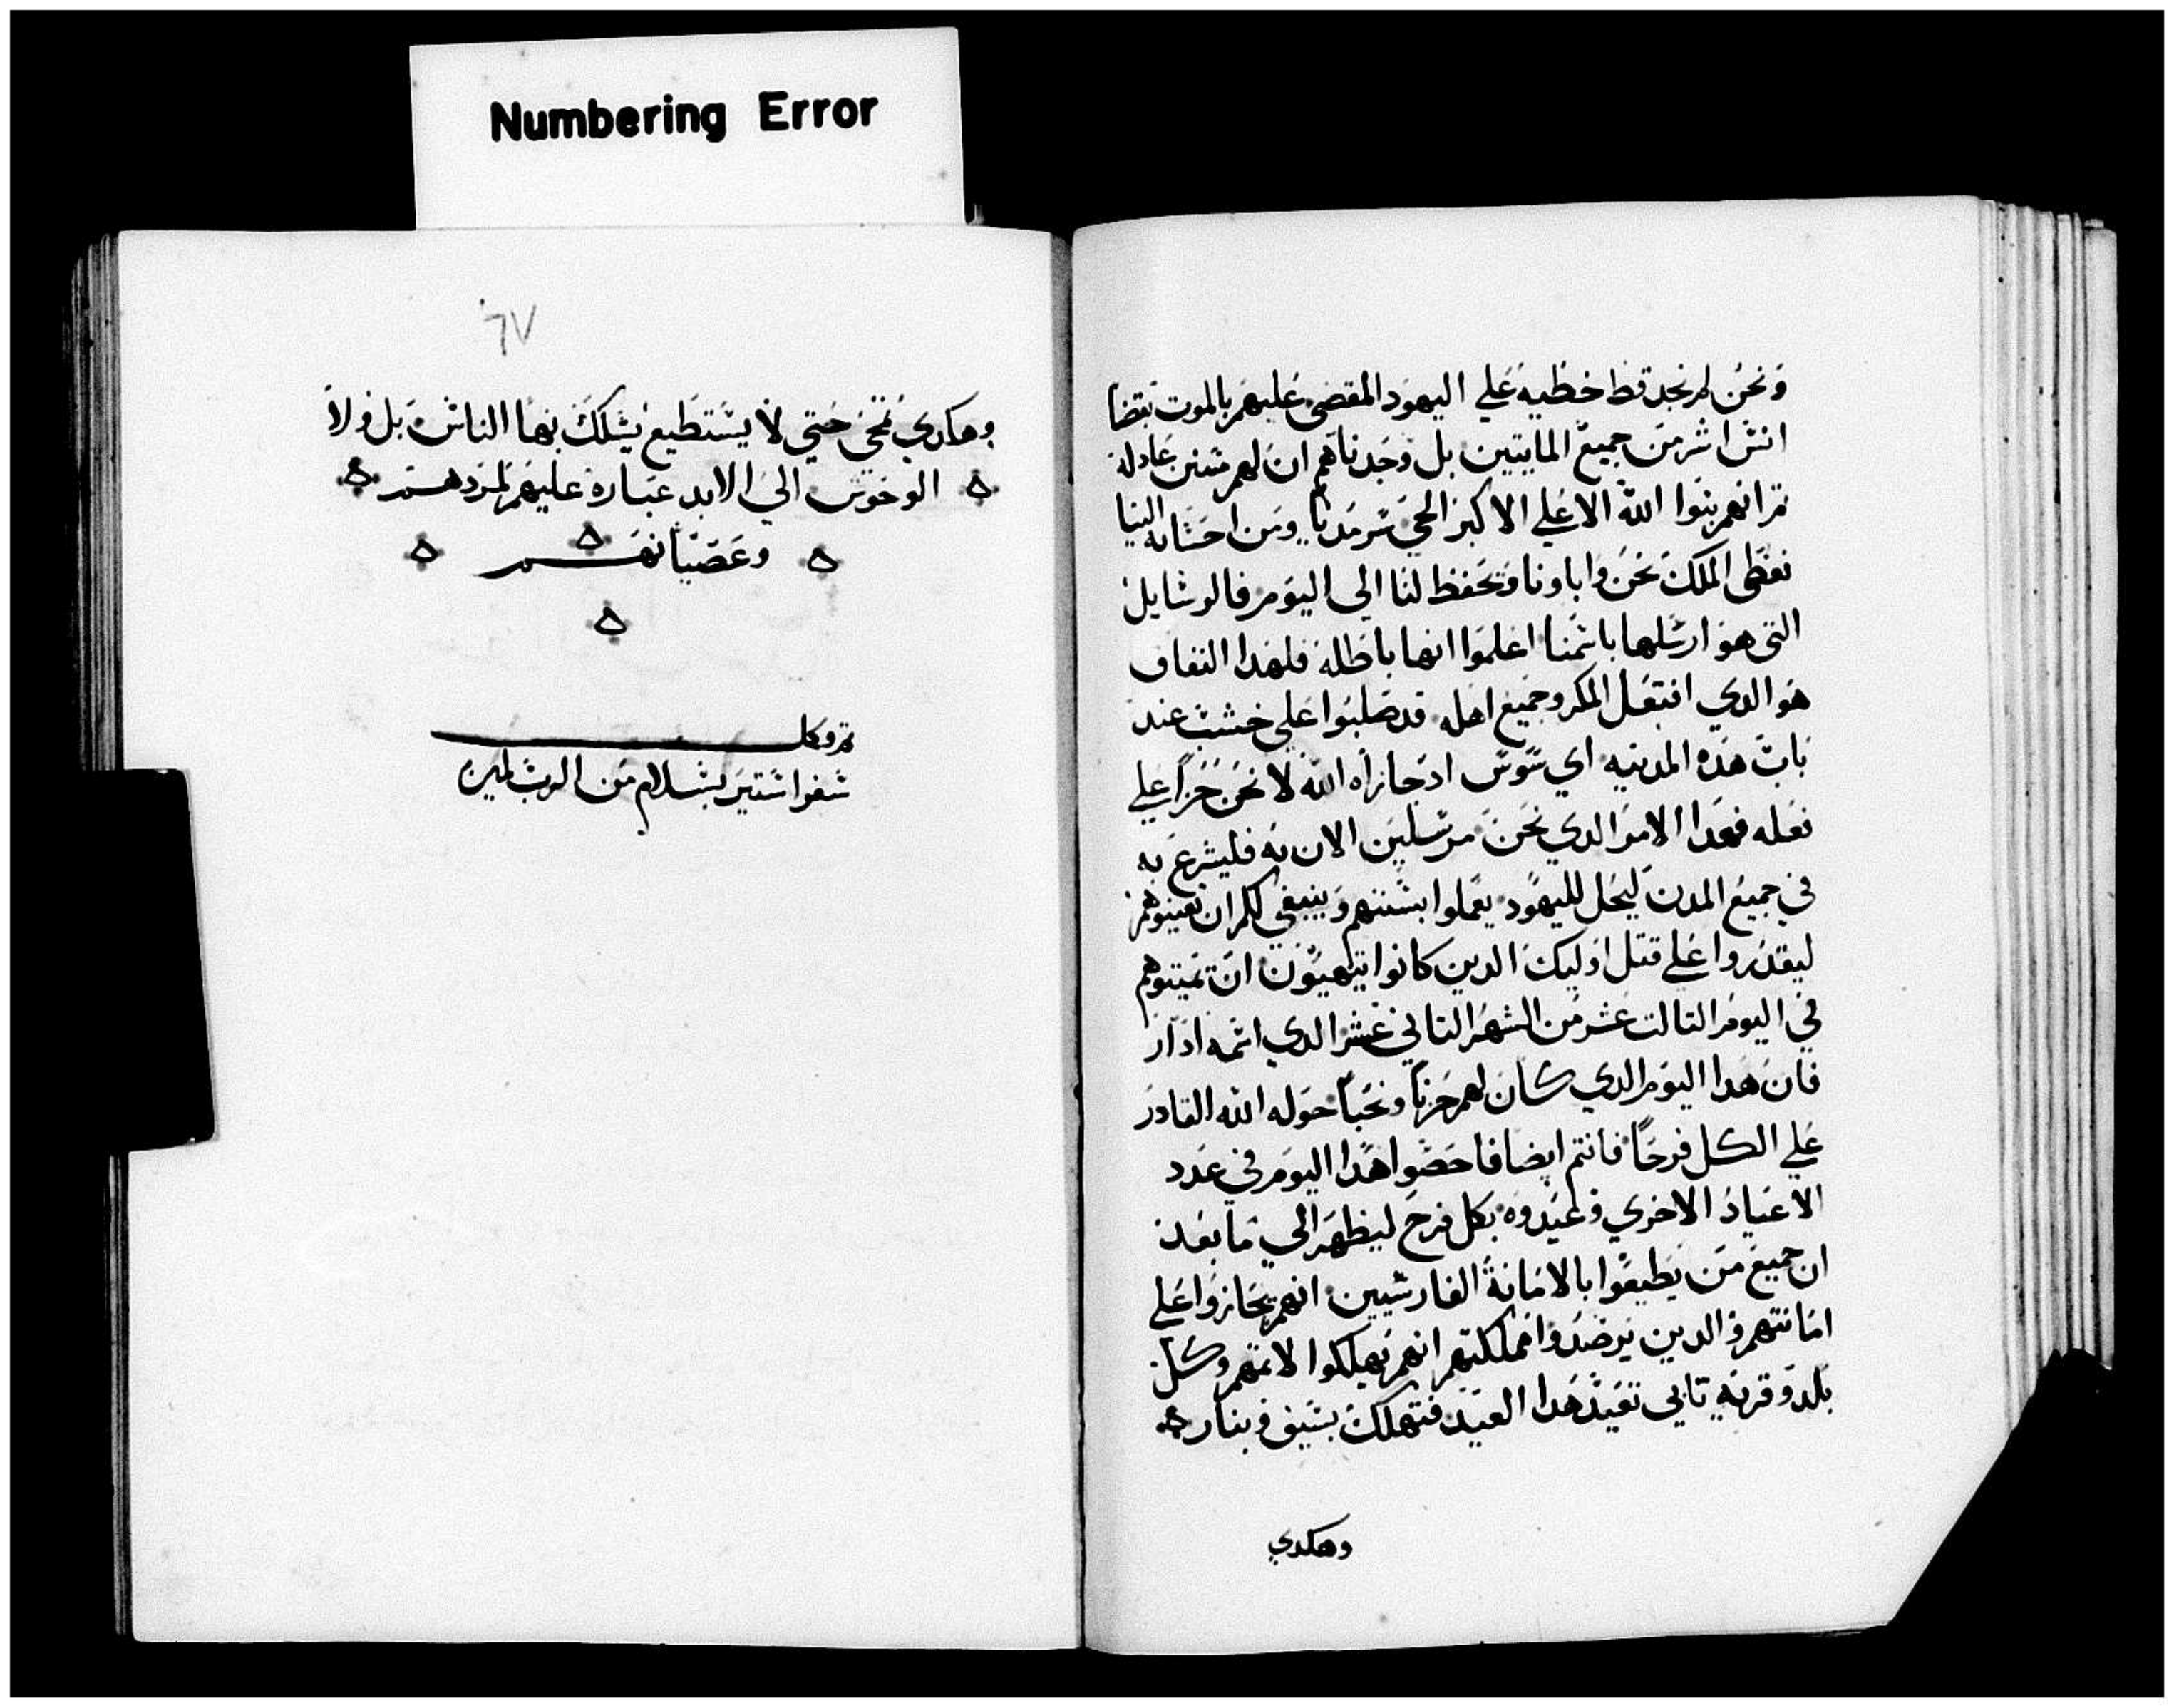 Numbering Error
ونحن لم نجد قط خطيه علي اليهود المقضي عليهم بالموت بقضا
انش اشر من جميع المايتين بل وجدناهم ان لهم سنن عادله
ثم انهم بنوا الله الاعلي الاكبر الحي سرمديا ومن احسانه الينا
نعطى الملك نحن واباونا وتحفظ لنا الى اليوم فالرسايل
التى هو ارسلها باسمنا اعلموا انها باطله فلهدا النفاق
هو الدي افتعل المكر وجميع اهله قد صلبوا على خشب عند
باب هده المدينه اي سوس اد جازاه الله لا نحن جزا علي
فعله فهدا الامر الدي نحن مرسلين الان به فليشرع به
في جميع المدن ليحل لليهود يعملوا بسننهم وينبغي لكم ان تعينوهم
ليقدروا على قتل اوليك الدين كانوا يتهيون ان تميتوهم
في اليوم التالت عشر من الشهر التاني عشر الدي اسمه ادار
فان هدا اليوم الدي كان لهم حزنا ونحبا حوله الله القادر
علي الكل فرحا فانتم ايضا فاحصوا هدا اليوم في عدد
الاعياد الاخري وعيدوه بكل فرح ليظهر الي ما بعد
ان جميع من يطيعوا بالامانة الفارسيين انهم يجازوا على
امانتهم والدين يرصدوا مملكتهم انهم يهلكوا لاتمهم وكل
بلد وقريه تابى تعيد هدا العيد فتهلك بسيف وبنار
وهكدي
٦٧
وهكدي تمحى حتي لا يستطيع يسلك بها الناس بل ولا
الوحوش الي الابد عباره عليهم لمردهم
وعصيانهم
تم وكل
سفر استير بسلام من الرب امين